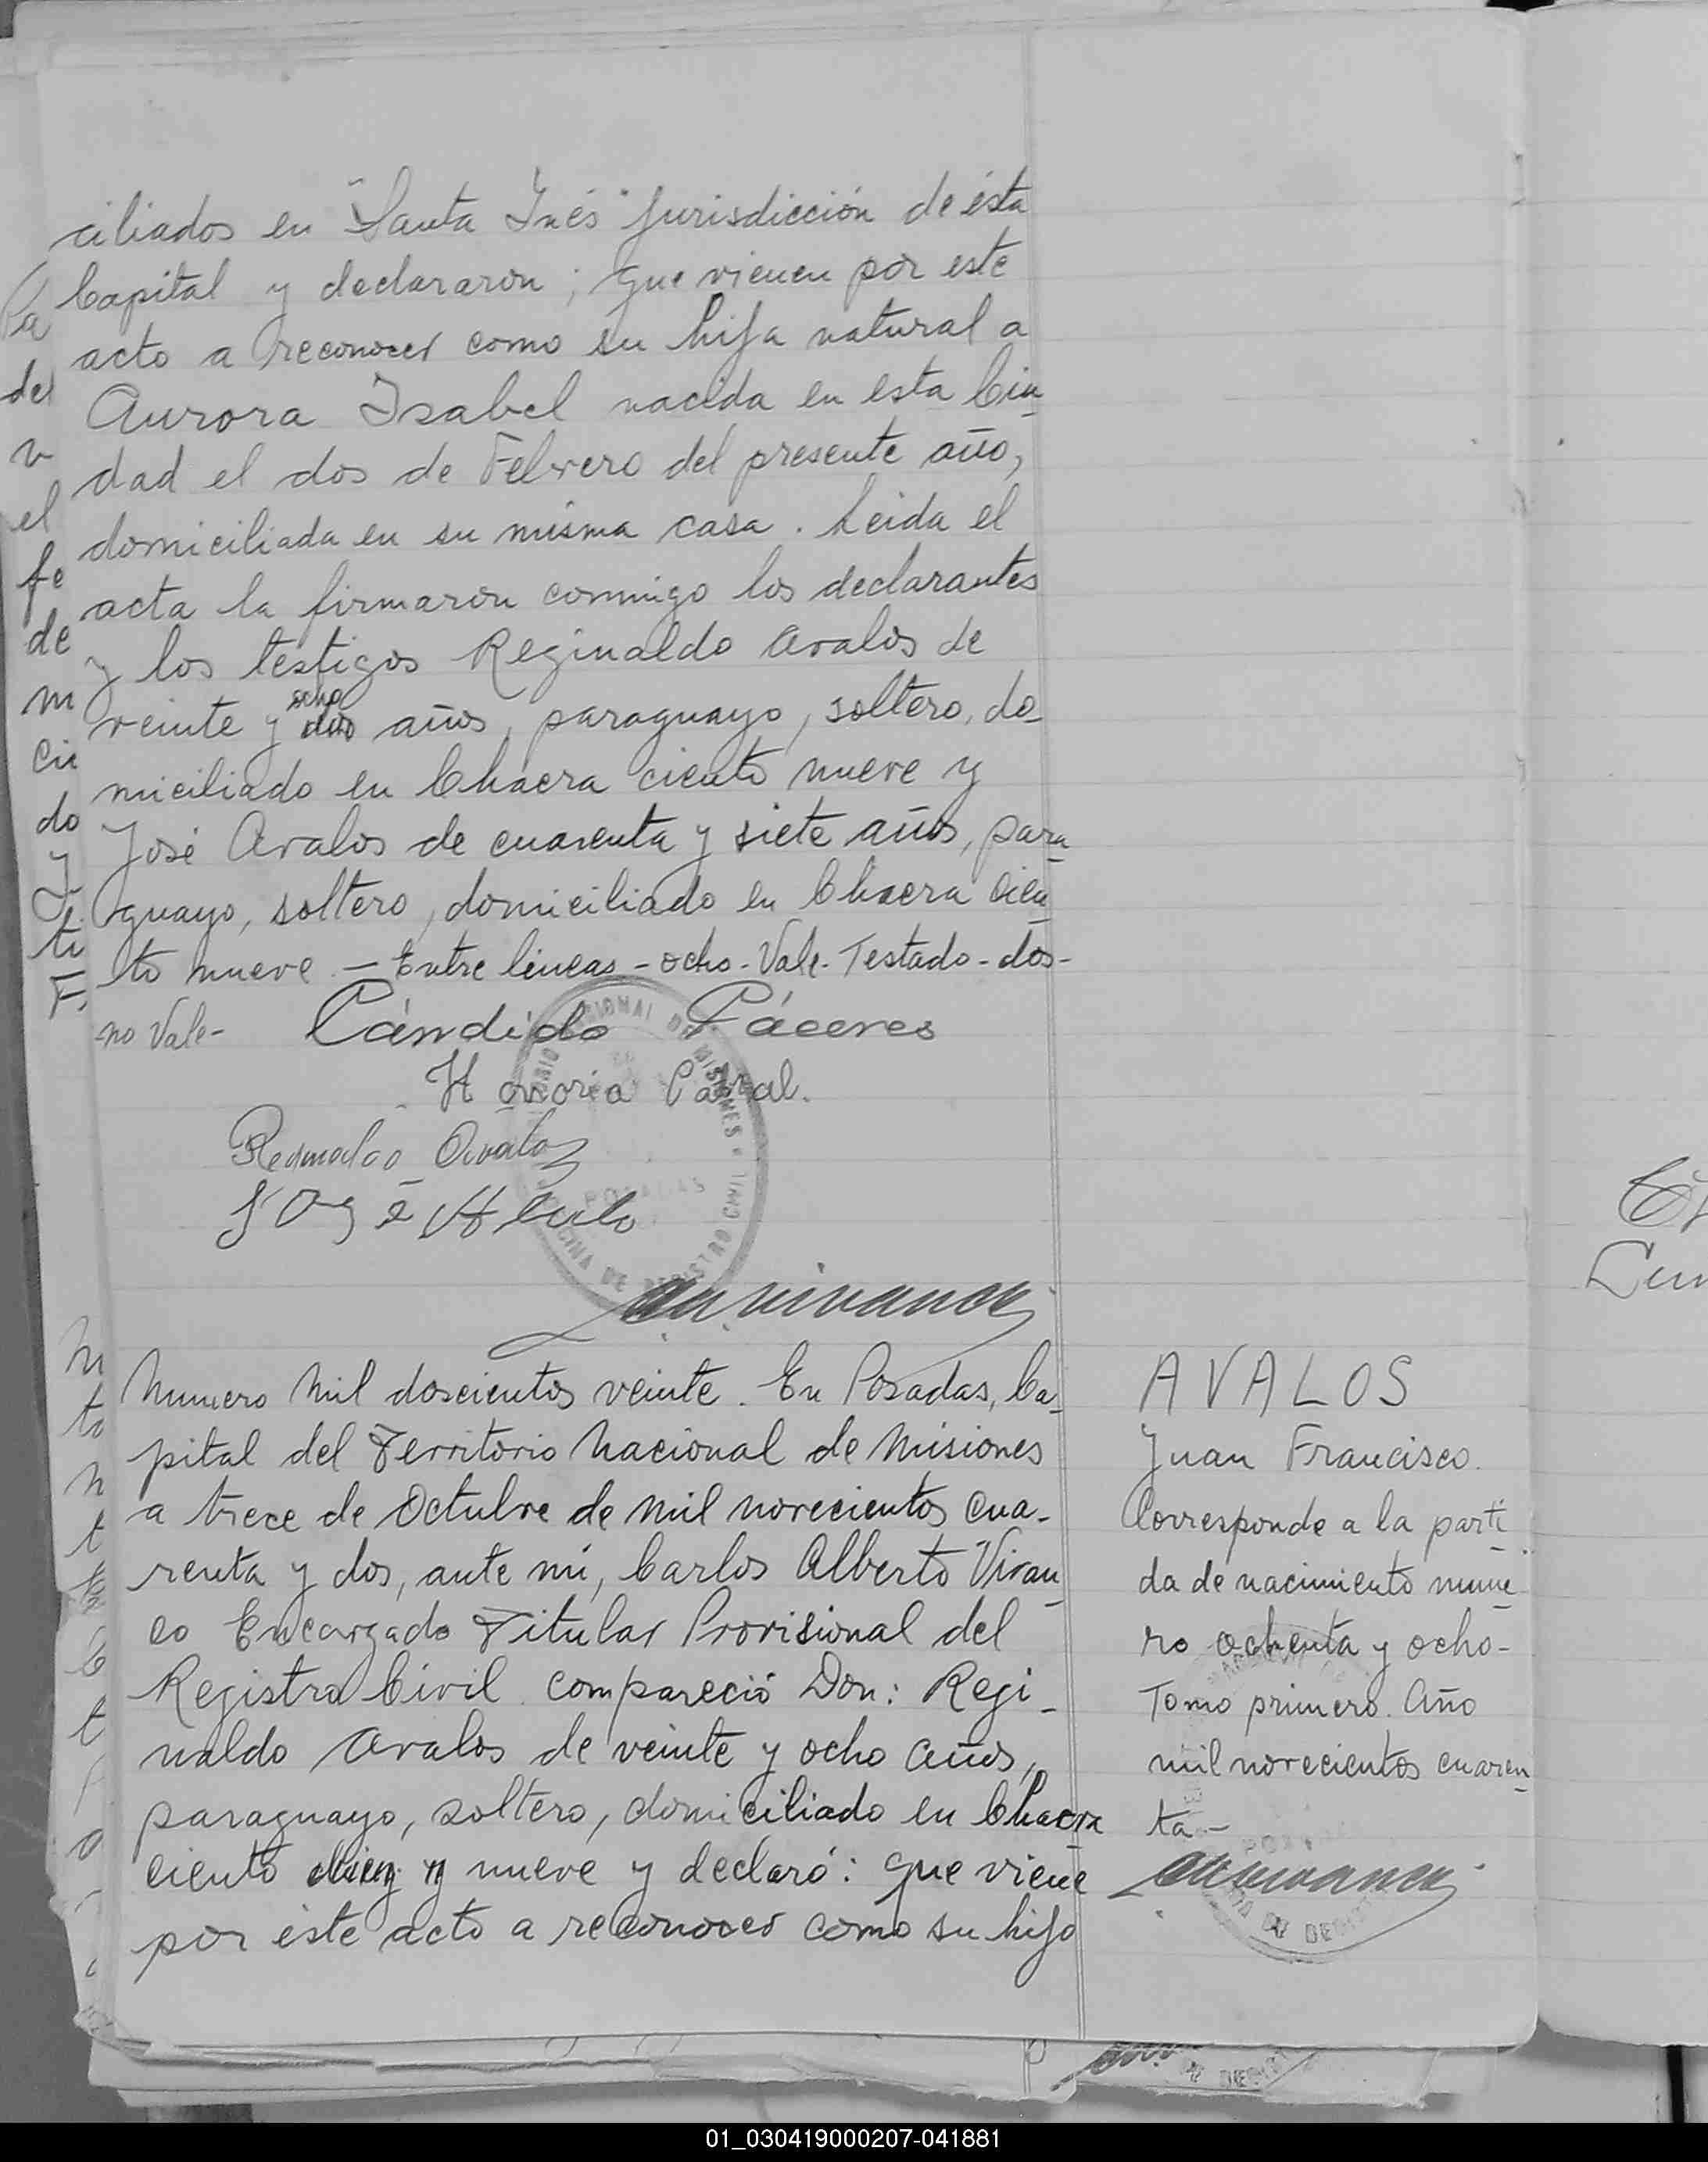 ciliados en "Santa Inés" Jurisdicción de ésta
Capital y declararon; que vienen por este
acto a reconocer como su hija natural a
Aurora Isabel nacida en esta Ciu_
dad el dos de Febrero del presente año,
domiciliada en su misma casa. Leida el
acta la firmaron conmigo los declarantes
y los testigos Reginaldo Avalos de
ocho
veinte y dos años, paraguayo, soltero, do_
miciliado en Chacra ciento nueve y
José Avalos de cuarenta y siete años, para_
guayo, soltero, domiciliado en Chacra cien_
to nueve. - Entre lineas - ocho - Vale. Testado - dos -
no Vale -
Cándido Cáceres
Honoria
José
Numero mil doscientos veinte. En Posadas, Ca_
pital del Territorio Nacional de Misiones
a trece de Octubre de mil novecientos cua-
renta y dos, ante mi, Carlos Alberto Vivan_
co Encargado Titular Provisional del
Registro Civil compareció Don: Regi_
naldo Avalos de veinte y ocho años,
paraguayo, soltero, domiciliado en Chacra
ciento nueve y declaró: que viene
por éste acto a reconocer como su hijo
AVALOS
Juan Francisco.
Corresponde a la parti_
da de nacimiento nume_
ro ochenta y ocho -
Tomo primero. Año
mil novecientos cuaren_
ta -
01_030419000207-041881